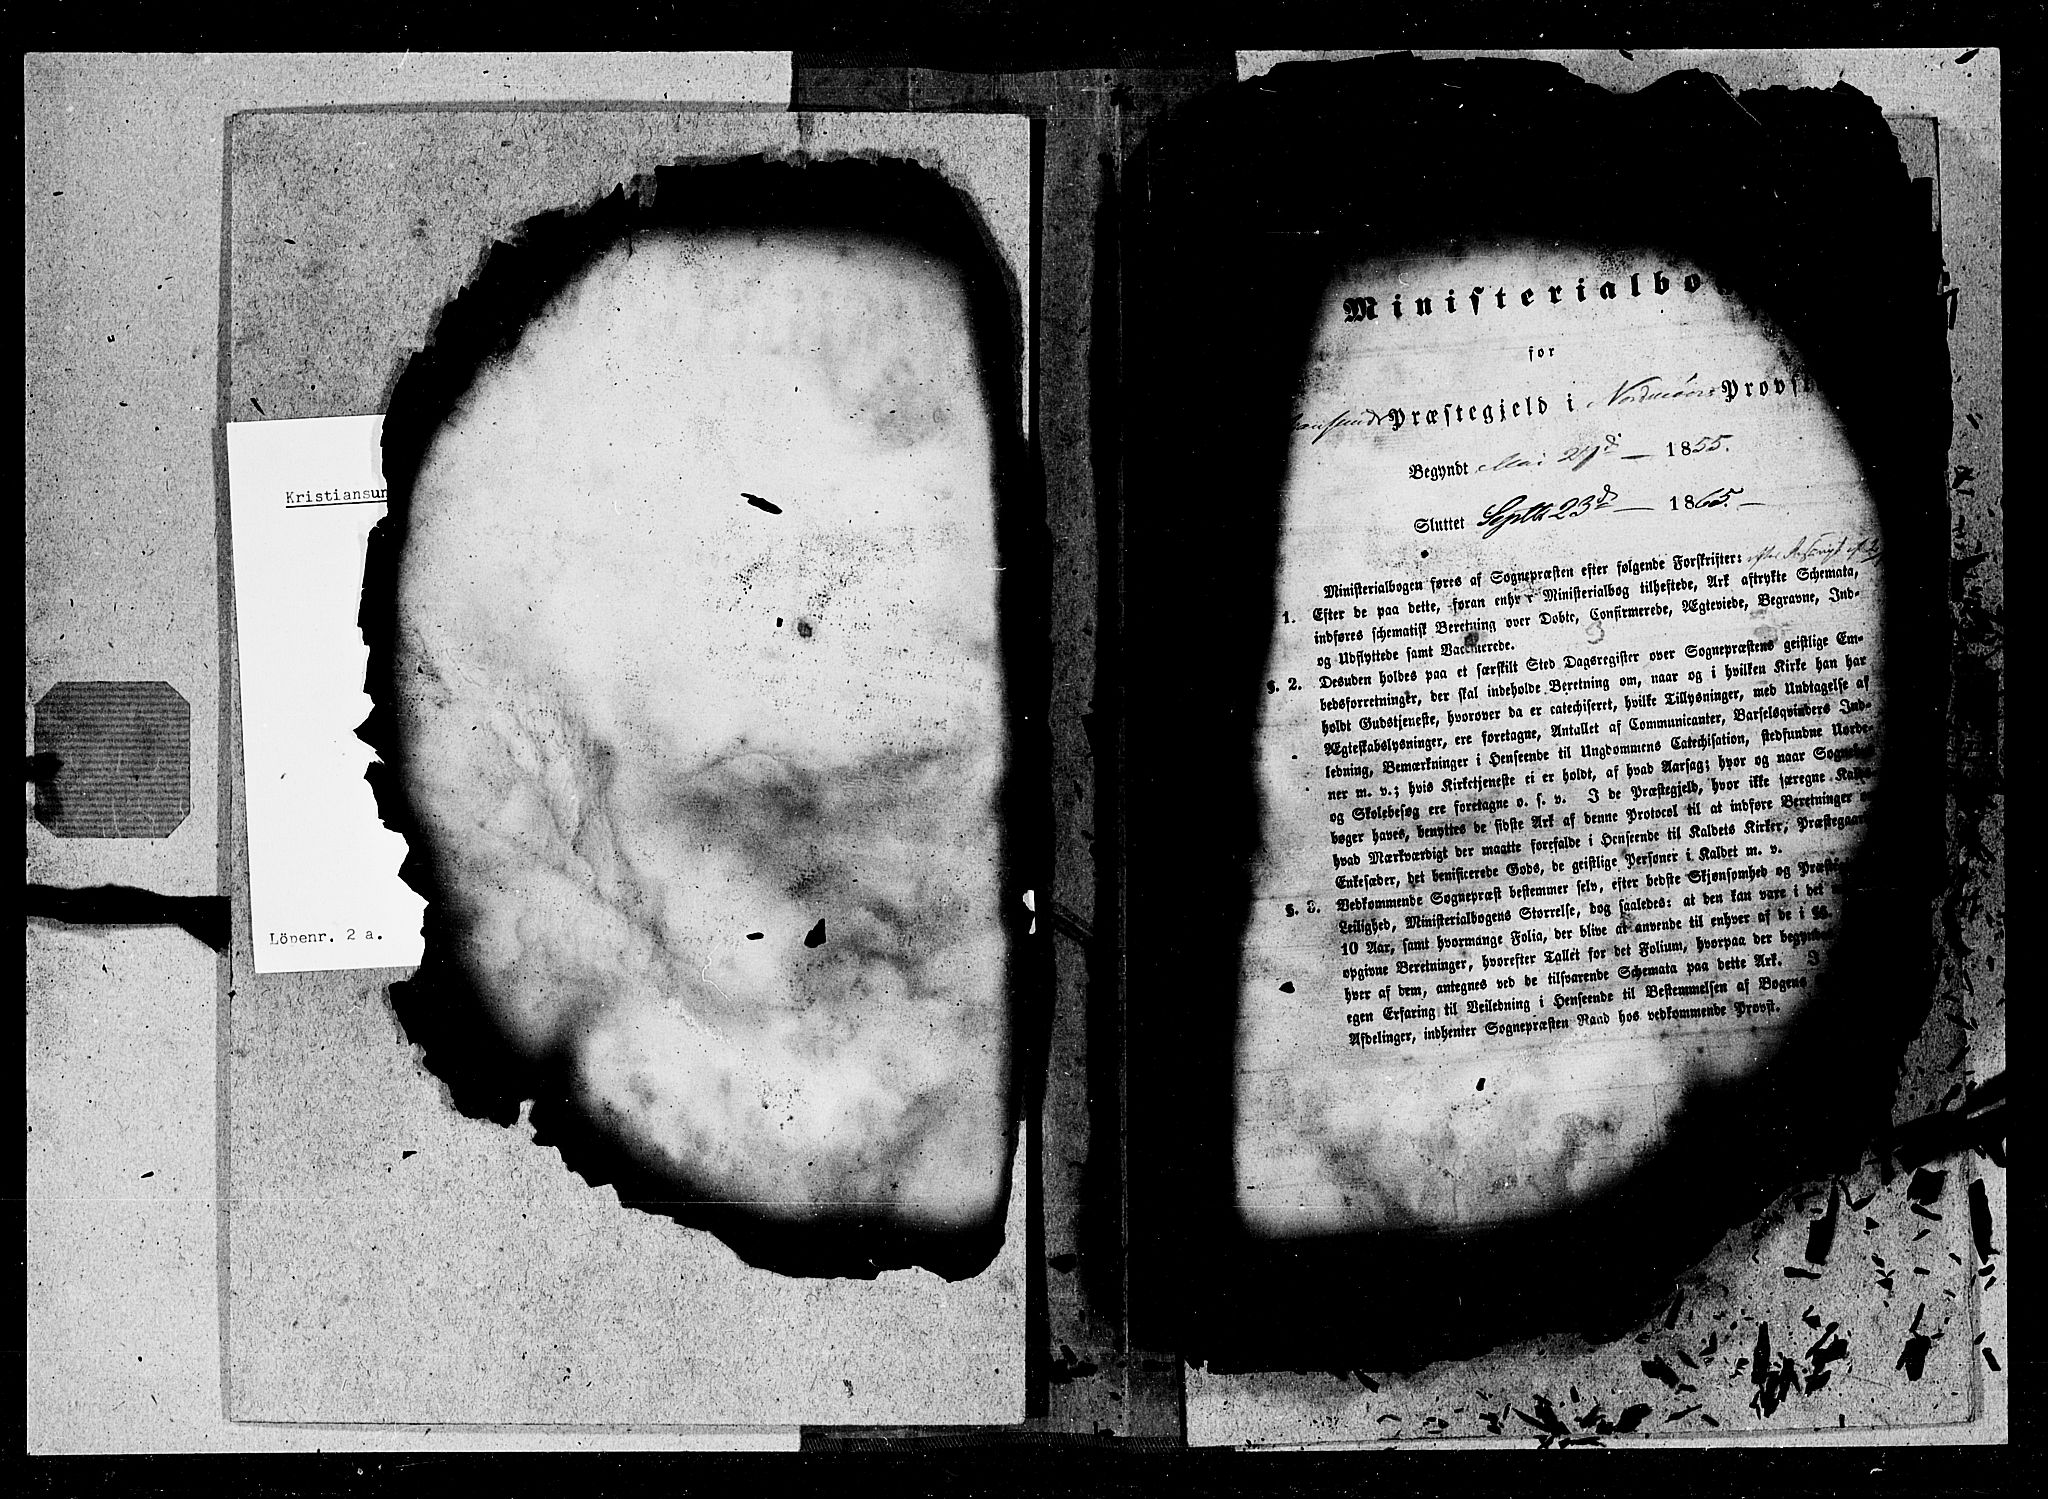 Kristiansun
Löpenr. 2 a.
Ministerialbo
for
Præstegjeld i Nordmøre Provst
Begyndt Mai 29d — 1855.
Sluttet Septbr 23d — 1865.—
Ministerialbogen føres af Sognepræsten efter følgende Forskrifter:
1. Efter de paa dette, foran enhver Ministerialbog tilheftede, Ark aftrykte Schemata,
indføres schematisk Beretning over Døbte, Confirmerede, Ægteviede, Begravne, Ind-
og Udflyttede samt Vaccinerede.
§. 2. Desuden holdes paa et særskilt Sted Dagsregister over Sognepræstens geistlige Em-
bedsforretninger, der skal indeholde Beretning om, naar og i hvilken Kirke han har
holdt Gudstjeneste, hvorover da er catechiseret, hvilke Tillysninger, med Undtagelse af
Ægteskabslysninger, ere foretagne, Antallet af Communicanter, Barselqvinders Ind-
ledning, Bemærkninger i Henseende til Ungdommens Catechisation, stedfundne Uorde-
ner m. v.; hvis Kirketjeneste ei er holdt, af hvad Aarsag; hvor og naar Sogne
og Skolebesøg ere foretagne o. s. v. I de Præstegjeld, hvor ikke særegne Kalds
bøger haves, benyttes de sidste Ark af denne Protocol til at indføre Beretninger
hvad Mærkværdigt der maatte forefalde i Henseende til Kaldets Kirker, Præstegaar
Enkesæder, det benificerede Gods, de geistlige Personer i Kaldet m. v.
§. 3. Vedkommende Sognepræst bestemmer selv, efter bedste Skjønsomhed og Præste
Leilighed, Ministerialbogens Størrelse, dog saaledes: at den kan vare i det
10 Aar, samt hvormange Folia, der blive at anvende til enhver af de i §§.
opgivne Beretninger, hvorefter Tallet for det Folium, hvorpaa der begynde
hver af dem, antegnes ved de tilsvarende Schemata paa dette Ark. I
egen Erfaring til Veiledning i Henseende til Bestemmelsen af Bogens
Afdelinger, indhenter Sognepræsten Raad hos vedkommende Provst.